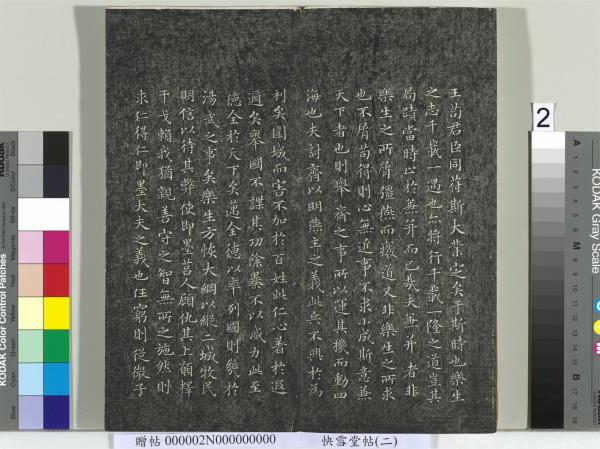 王苟君臣同符斯大業定矣于斯時也樂生
之志千載一遇也亦將行千載一隆之道豈其
局蹟當時止於兼并而已哉夫兼并者非
樂生之所屑彊燕而廢道又非樂生之所求
也不屑苟得則心無近事不求小成斯意兼
天下者也則舉齊之事所以運其機而動四
海也夫討齊以明燕主之義此兵不興於為
利矣圍城而害不加於百姓此仁心著於遐
邇矣舉國不謀其功除暴不以威力此至
德全於天下矣邁全德以率列國則幾於
湯武之事矣樂生方恢大綱以縱二城牧民
明信以待其弊使即墨莒人顧仇其上願釋
干戈賴我猶親善守之智無所之施然則
求仁得仁即墨大夫之義也任窮則從微子
贈帖 000002N000000000 快雪堂帖(二)
2
KODAK Color Control Patches
Blue
Cyan
Green
Yellow
Red
Magenta
White
3/Color
Black
KODAK Gray Scale
A
1
2
3
4
5
6
M
8
9
10
11
12
13
14
15
B
17
18
19
C
Y
M